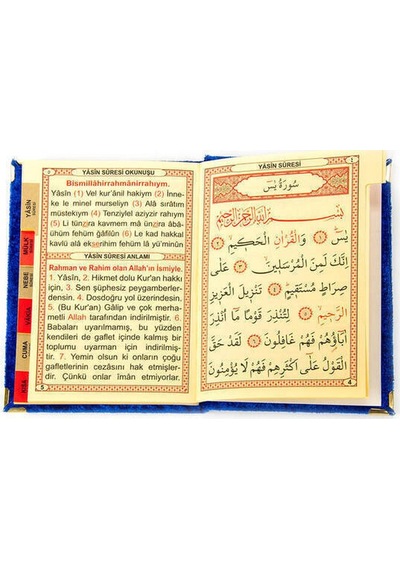 YÂSÎN SÛRESİ OKUNUŞU
Bismillâhirrahmânirrahıym.
Yâsîn (1) Vel kur'ânil hakiym (2) İnne-
ke le minel murseliyn (3) Alâ sırâtim
müstekiym (4) Tenziylel aziyzir rahıym
(5) Li tünzira kavmem mâ ünzira âbâ-
ühüm fehüm ğâfilûn (6) Le kad hakkal
kavlü alâ ekserihim fehüm lâ yü'minûn
YÂSÎN SÛRESİ ANLAMI
Rahman ve Rahim olan Allah'ın İsmiyle.
1. Yâsîn, 2. Hikmet dolu Kur'an hakkı
için, 3. Sen şüphesiz peygamberler-
densin. 4. Dosdoğru yol üzerindesin.
5. (Bu Kur'an) Gâlip ve çok merha-
metli Allah tarafından indirilmiştir. 6.
Babaları uyarılmamış, bu yüzden
kendileri de gaflet içinde kalmış bir
toplumu uyarman için indirilmiş-
tir. 7. Yemin olsun ki onların çoğu
gafletlerinin cezâsını hak etmişler-
dir. Çünkü onlar îmân etmiyorlar.
5
YÂSÎN SÛRESİ
MÜLK SÛRESİ
NEBE SÛRESİ
CUMA
KISA
YÂSÎN SÛRESİ
٤
سُورَةُ يٰسٓ
بِسْمِ اللّٰهِ الرَّحْمٰنِ الرَّحِيمِ
يٰسٓ ﴿١﴾ وَالْقُرْاٰنِ الْحَكِيمِ ﴿٢﴾
اِنَّكَ لَمِنَ الْمُرْسَلِينَ ﴿٣﴾ عَلٰى
صِرَاطٍ مُسْتَقِيمٍ ﴿٤﴾ تَنْزِيلَ الْعَزِيزِ
الرَّحِيمِ ﴿٥﴾ لِتُنْذِرَ قَوْمًا مَٓا اُنْذِرَ
اٰبَٓاؤُ۬هُمْ فَهُمْ غَافِلُونَ ﴿٦﴾ لَقَدْ حَقَّ
الْقَوْلُ عَلٰٓى اَكْثَرِهِمْ فَهُمْ لَا يُؤْمِنُونَ
4